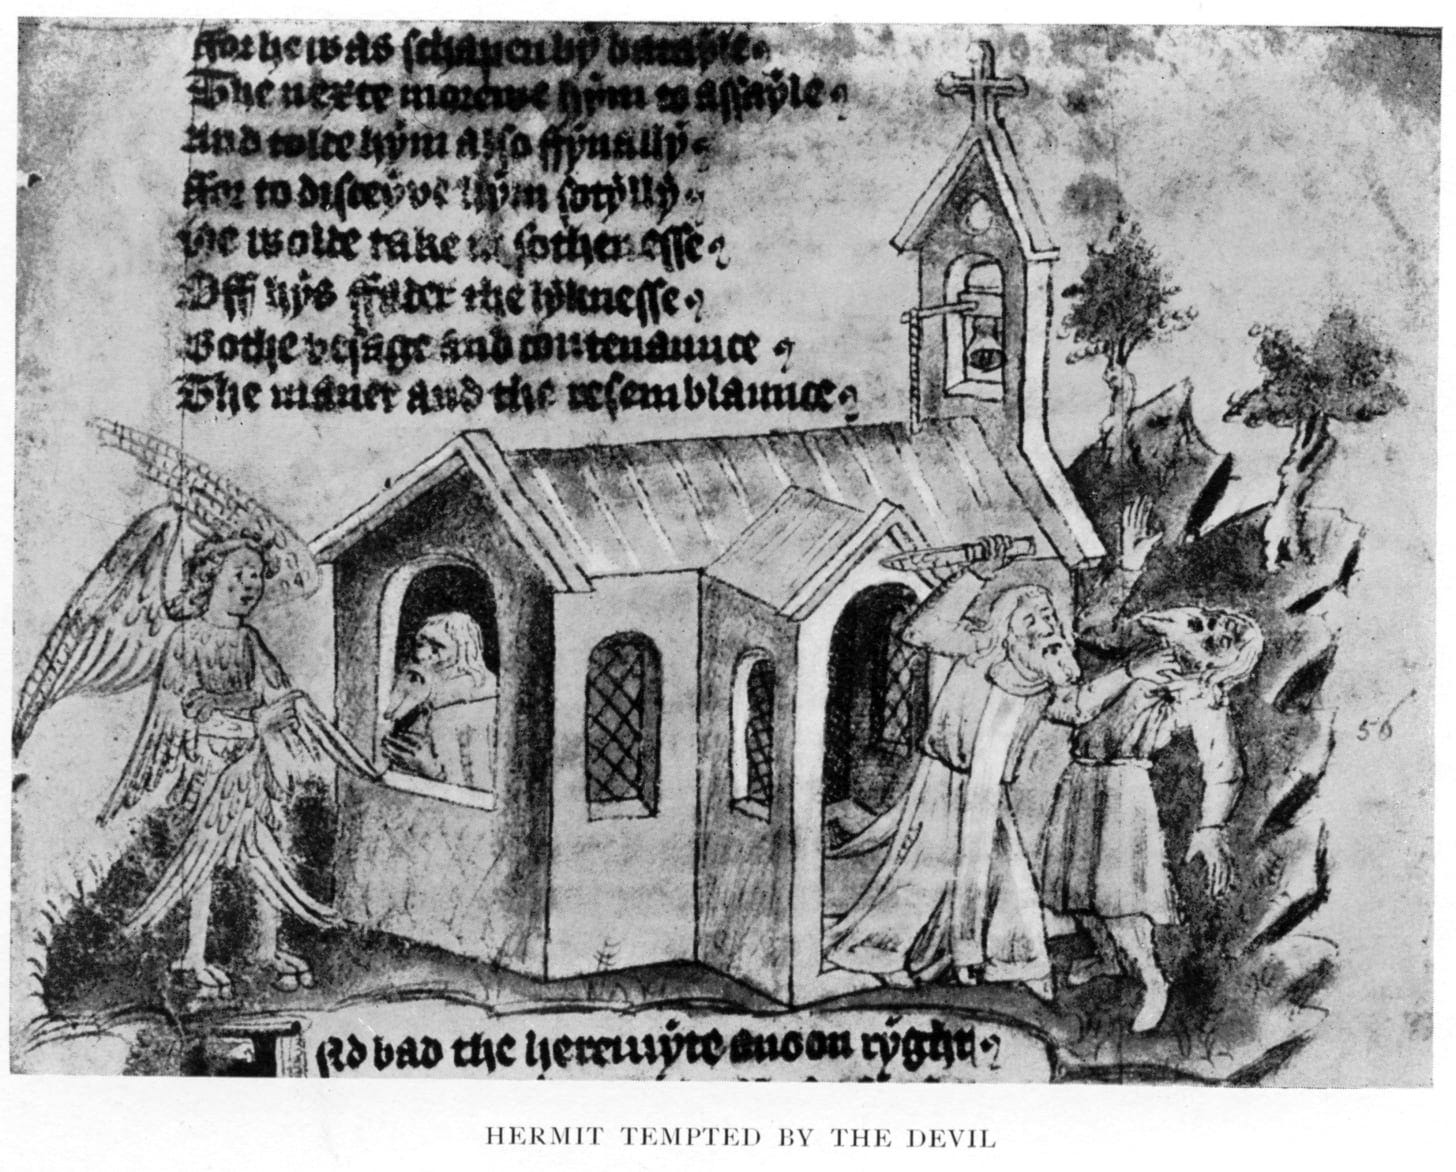 ffor he was schapen by bataylle
The nexte morewe hym to assayle
And tolde hym also ffynally
ffor to disceyve hym sotylly
He wolde take in sothenesse
Off hys ffader the lyknesse
Bothe vesage and contenaunce
The maner and the resemblaunce
56
Ad bad the heremyte anoon ryght
HERMIT TEMPTED BY THE DEVIL